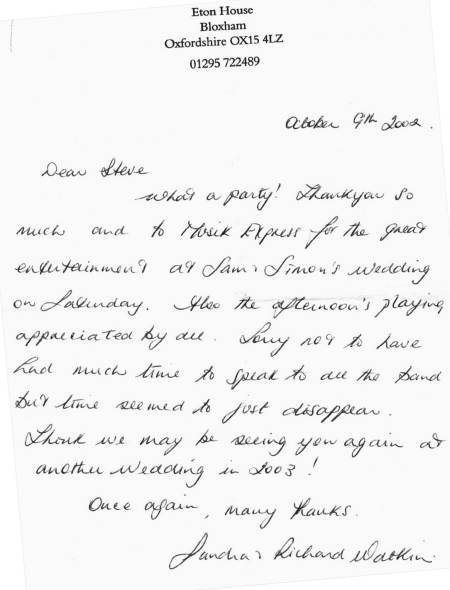 Eton House
Bloxham
Oxfordshire OX15 4LZ
01295 722489
October 9th 2002.
Dear Steve
What a party! Thankyou so
much and to Musik Express for the great
entertainment at Sam & Simon's wedding
on Saturday. Also the afternoon's playing
appreciated by all. Sorry not to have
had much time to speak to all the band
but time seemed to just disappear.
Think we may be seeing you again at
another wedding in 2003!
Once again, many thanks.
Sandra & Richard Watkin.